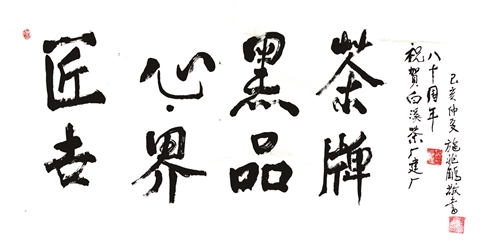 匠心黑茶
世界品牌
祝賀白溪茶厂建厂
八十周年
己亥仲夏 施兆鵬敬書